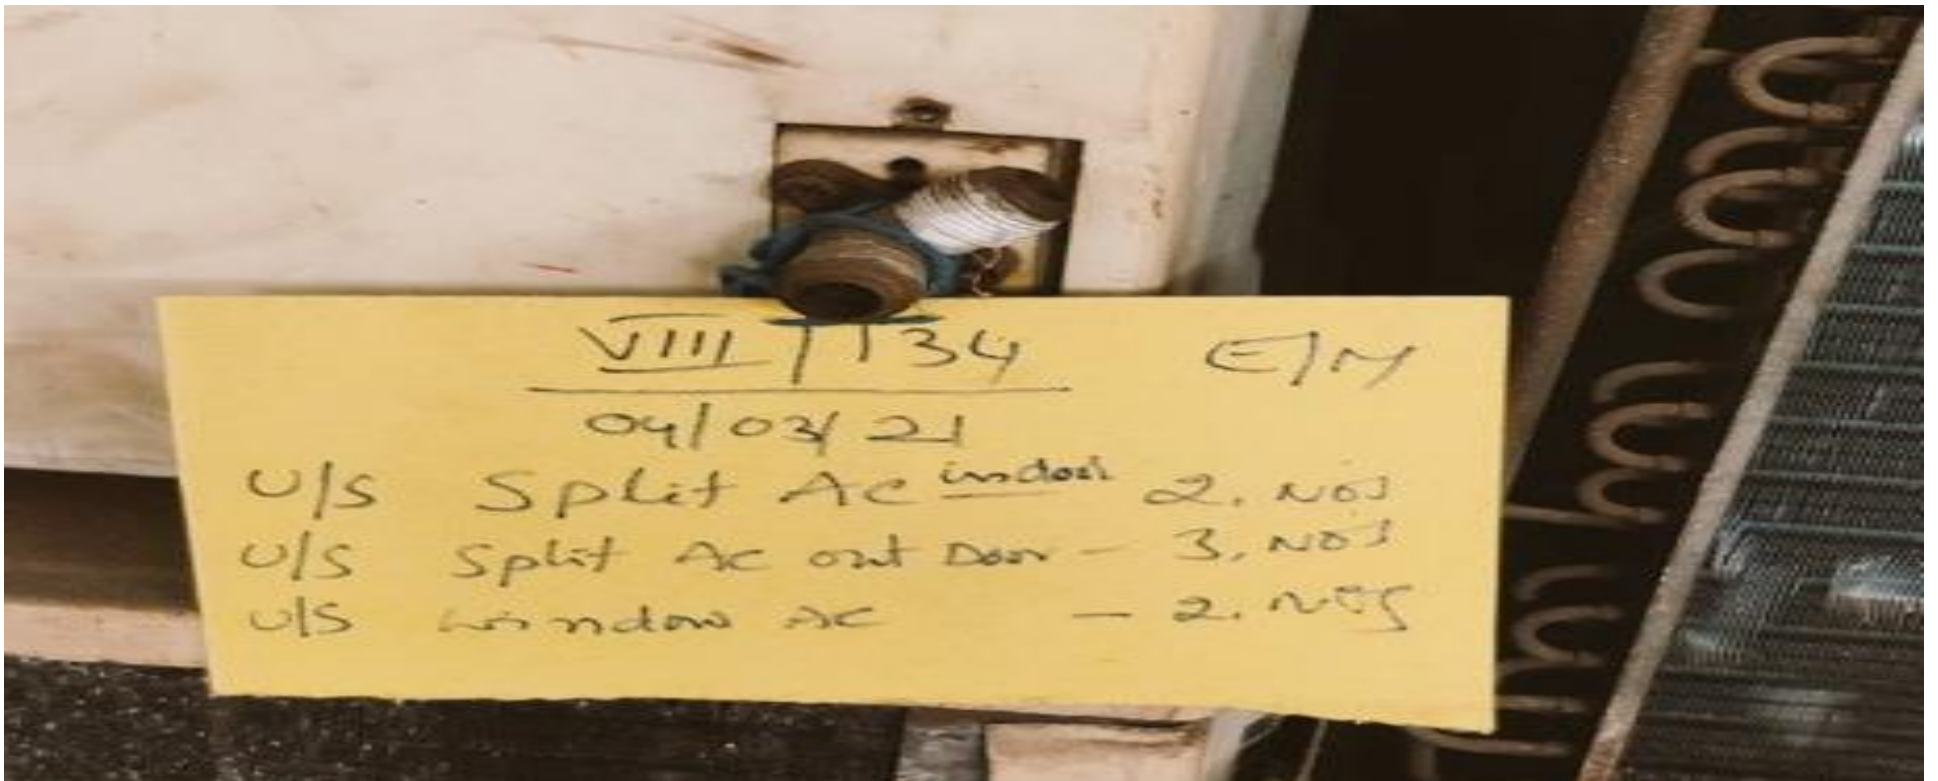 VIII/134 E/M
04/03/21
U/S Split AC indoor 2. NOS
U/S Split AC out Door - 3. NOS
U/S window AC - 2. NOS